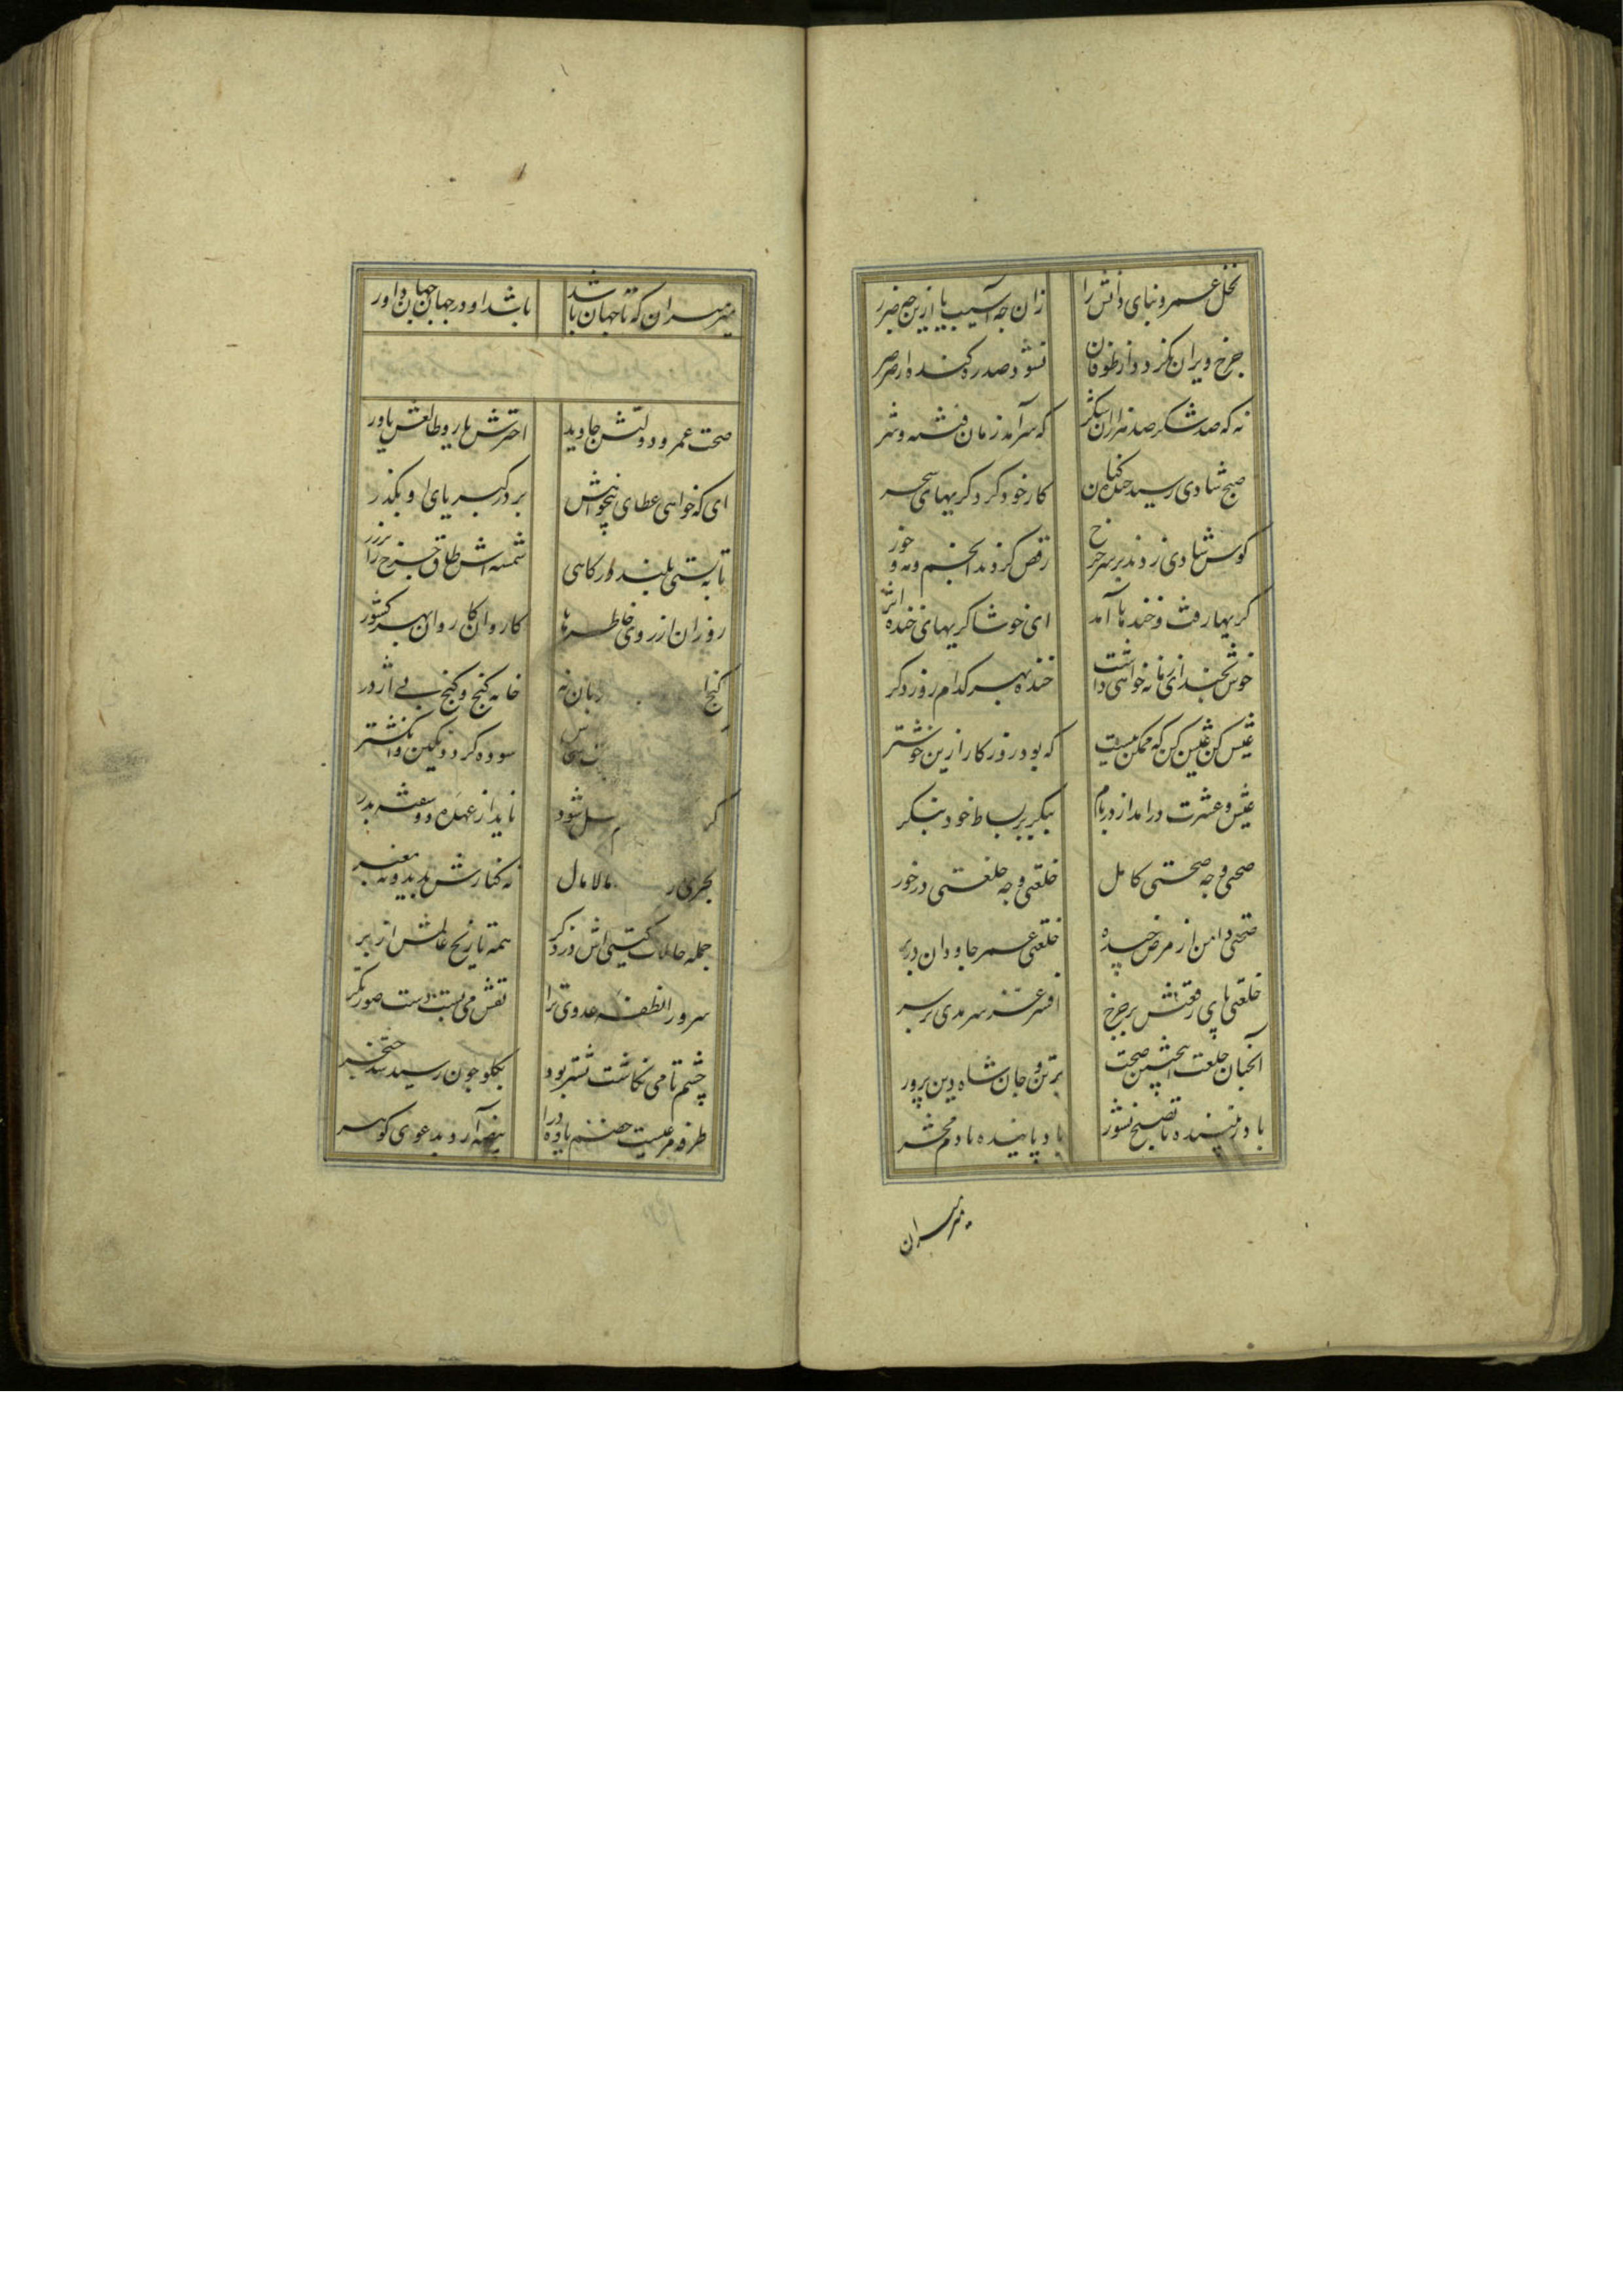 نخل عمر و بنای ذاتش را زان چه آسیب یا ازین چه ضرر
چرخ ویران نگردد از طوفان نشود صدره کنده از صرصر
نه که صد شکر صد هزاران شکر که سرآمد زمان فتنه و شر
صبح شادی رسید خنده کنان کار خود کرد گریهای سحر
کوس شادی زدند بر سر چرخ رقص کردند انجم و مه و خور
گریها رفت و خندها آمد ای خوشا گریهای خنده اثر
خوش بخند ای زمانه خواهی داشت خنده بهر کدام روز دگر
عیش کن عیش کن که ممکن نیست که بود روزگار ازین خوشتر
عیش و عشرت درآمد از در و بام بنگر بر بساط خود بنگر
صحتی و چه صحتی کامل خلعتی و چه خلعتی درخور
صحتی دامن از مرض چیده خلعتی عمر جاودان در بر
خلعتی پای رفعتش بر چرخ افسر عز سرمدی بر سر
آنچنان خلعت اینچنین صحت بر تن و جان شاه دین پرور
باد زیبنده تا صبح نشور باد پاینده تا دم محشر
میرمیران
میرمیران که تا جهان باشد باشد او در جهان جهان داور
صحت عمر و دولتش جاوید اخترش یار و طالعش یاور
ای که خواهی عطای بیخواهش بر در کبریای او بگذر
تا به بینی بلند درگاهی شمسه اش طاق چرخ را بر زر
رو زران از روی خاطرها کاروان کاروان بهر کشور
گنج بان نه خانه گنج و گنج بی اژدر
سوده گردد نگین و انگشتر
گر شود ناید از عهده دو هفته بدر
بحری مالامال نه کنارش پدید و نه معبر
جمله حالات گیتی اش در ذکر همه تاریخ عالمش از بر
سرورا نطفه عدوی ترا نقش می بست دست صورتگر
چشم تا می نگاشت نشتر بود بگلو چون رسید شد خنجر
طرفه مرغیست خصم یاوه درا بیضه آرد بدعوی گوهر